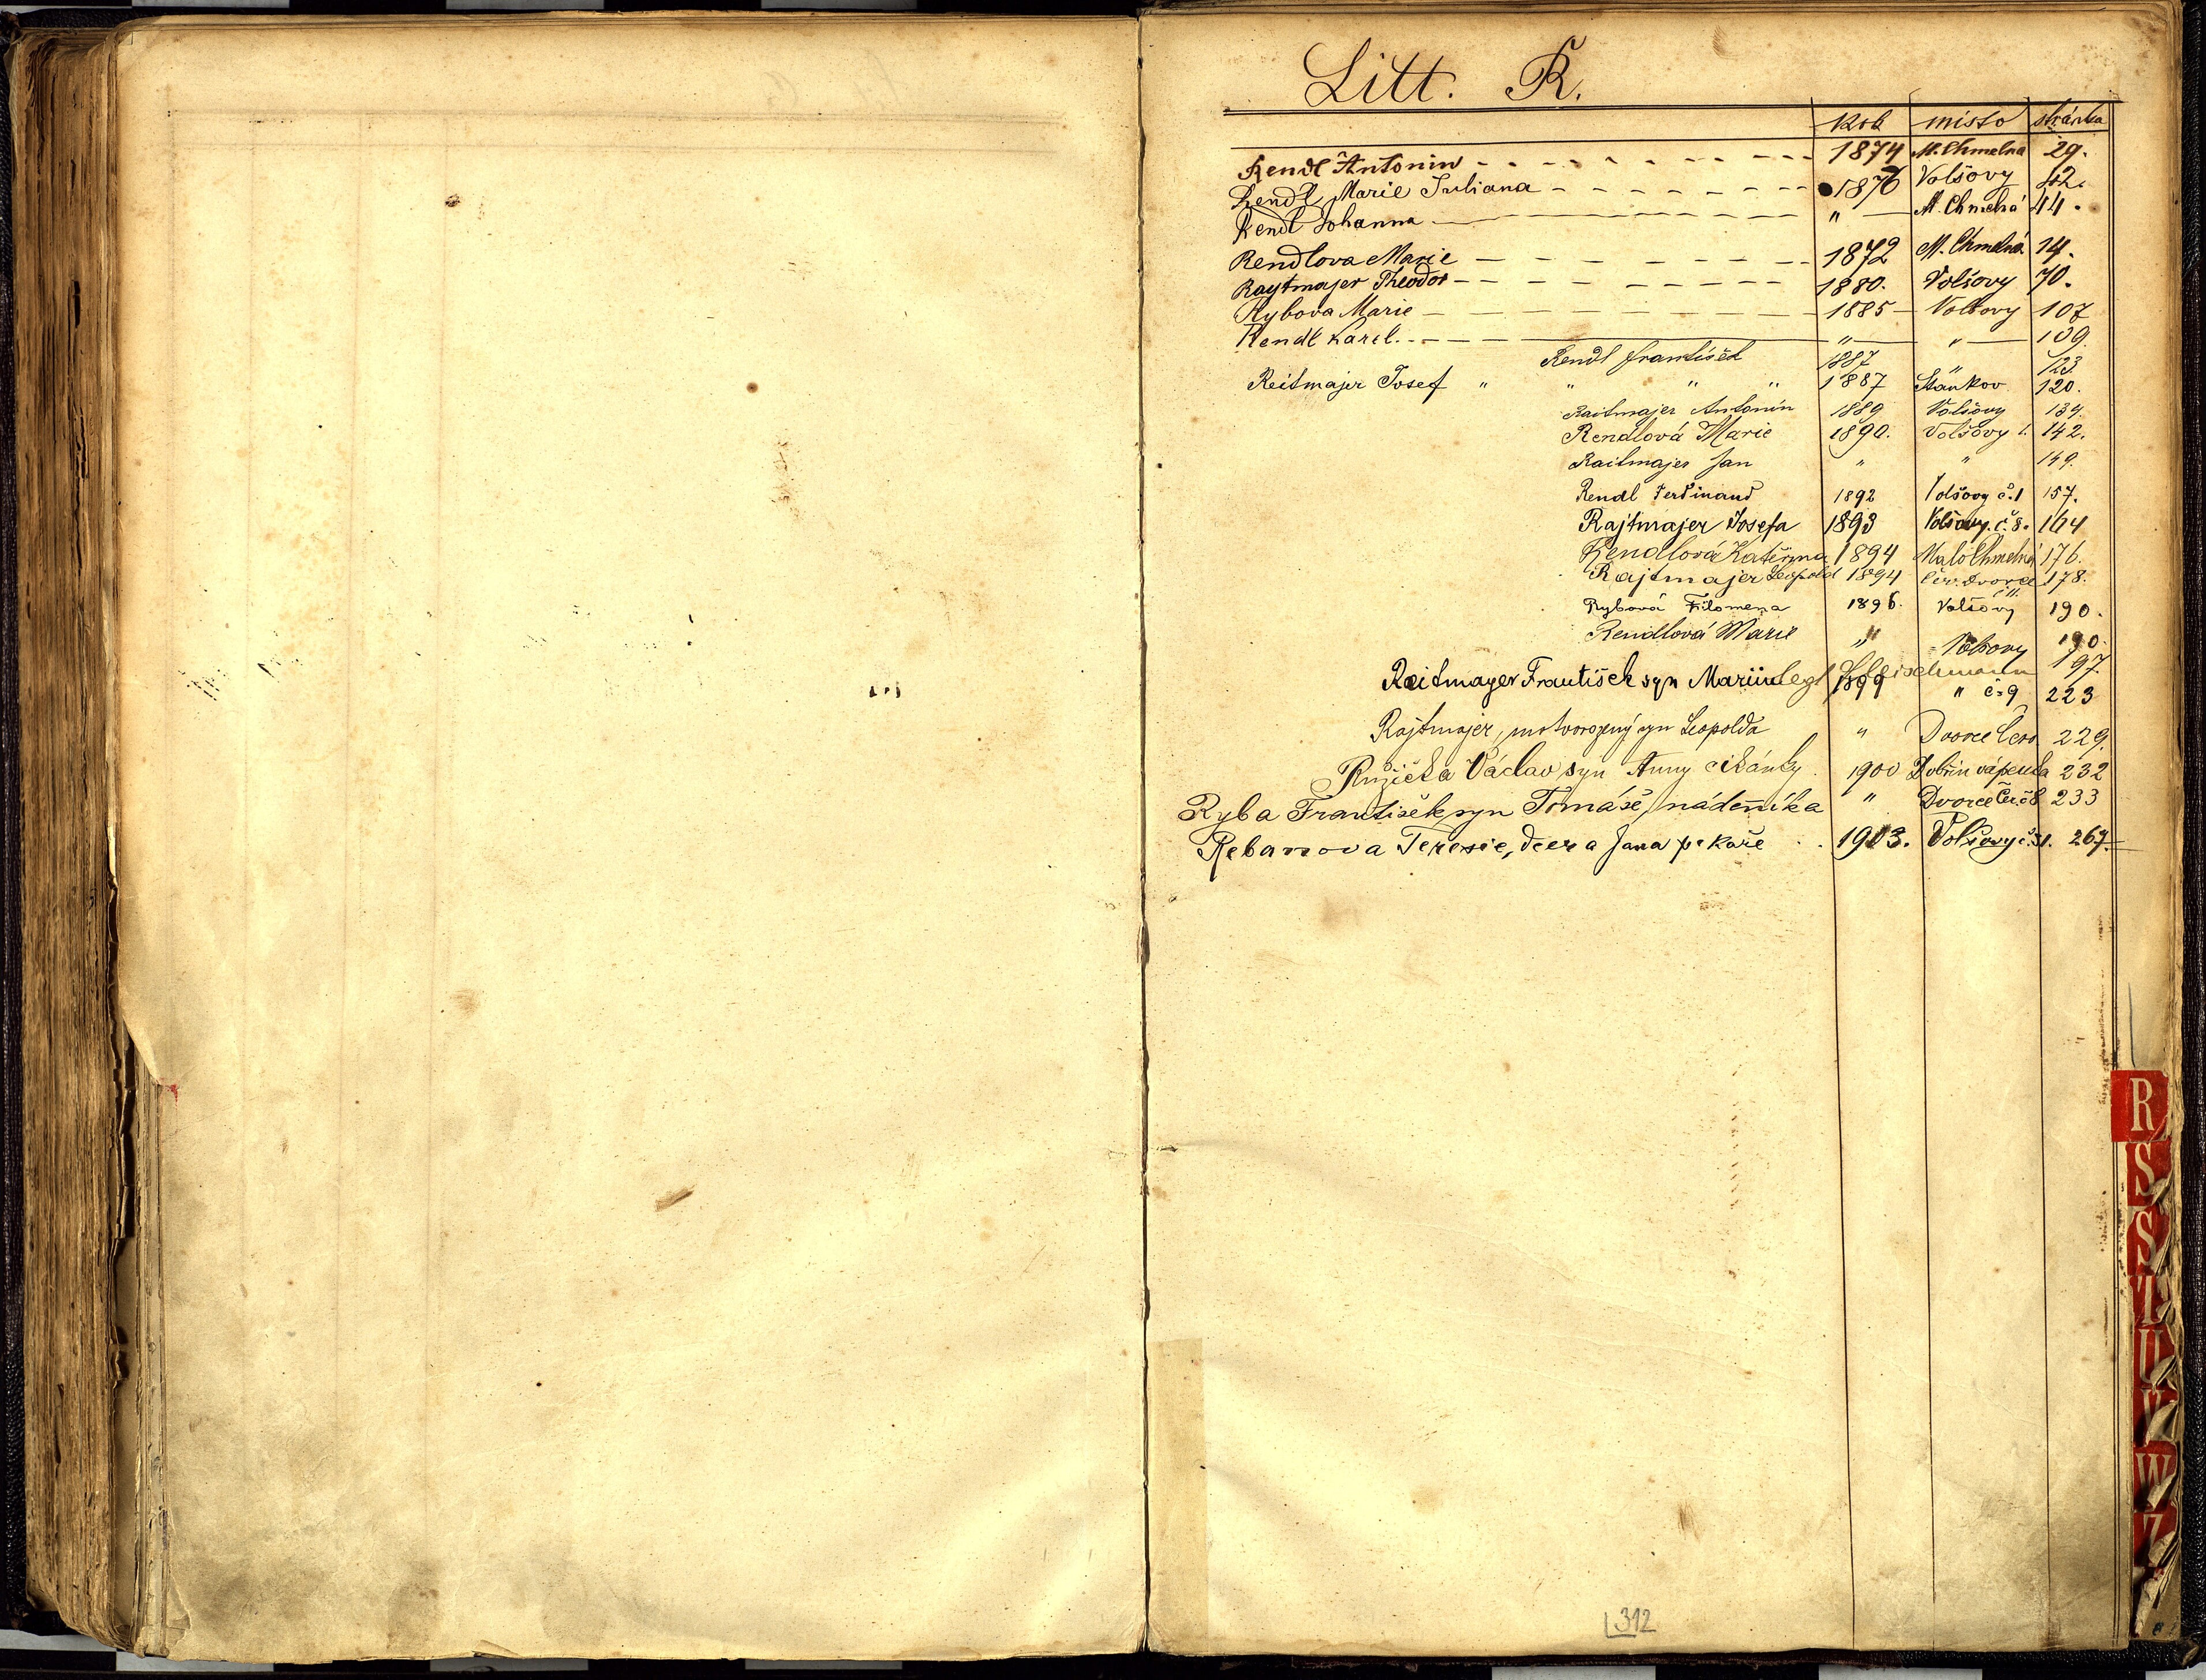 Litt. R.
Rok místo stránka
Rendl Antonin 1874 M. Chmelna 29.
Rendl Marie Juliana 1876 Volšovy 42.
Rendl Johanna " M. Chmelná 44.
Rendlova Marie 1872 M. Chmelná 14.
Raytmajer Theodor 1880. Volšovy 70.
Rybova Marie 1885 Volšovy 107
Rendl Karel. " " 109.
Rendl František 1887 " 123
Reitmajer Josef " " " " 1887 Stankov 120.
Raitmajer Antonín 1889 Volšovy 134.
Rendlová Marie 1890. Volšovy 1. 142.
Raitmajer Jan " " 149.
Rendl Ferdinand 1892 Volšovy č.1 157.
Rajtmajer Josefa 1893 Volšovy. č. 8. 164
Rendlová Kateřina 1894 Malo Chmelná 176.
Rajtmajer Leopold 1894 Čer. Dvorce 178.
Rybová Filomena 1896. Volšovy 190.
Rendlová Marie " Volšovy 190.
legt Fleischmann 197.
Reitmayer František syn Marie 1899 " č. 9 223
Rajtmajer, mrtvorozený syn Leopolda " Dvorce Červ 229.
Růžička Václav syn Anny cikánky. 1900 Dobřín vápenka 232
Ryba František, syn Tomáše, nádeníka " Dvorce Čer. č 8 233
Rebanova Teresie, dcera Jana pekaře . . 1903. Volšovy č. 31. 267.
312
R
S
S
U
V
W
Z